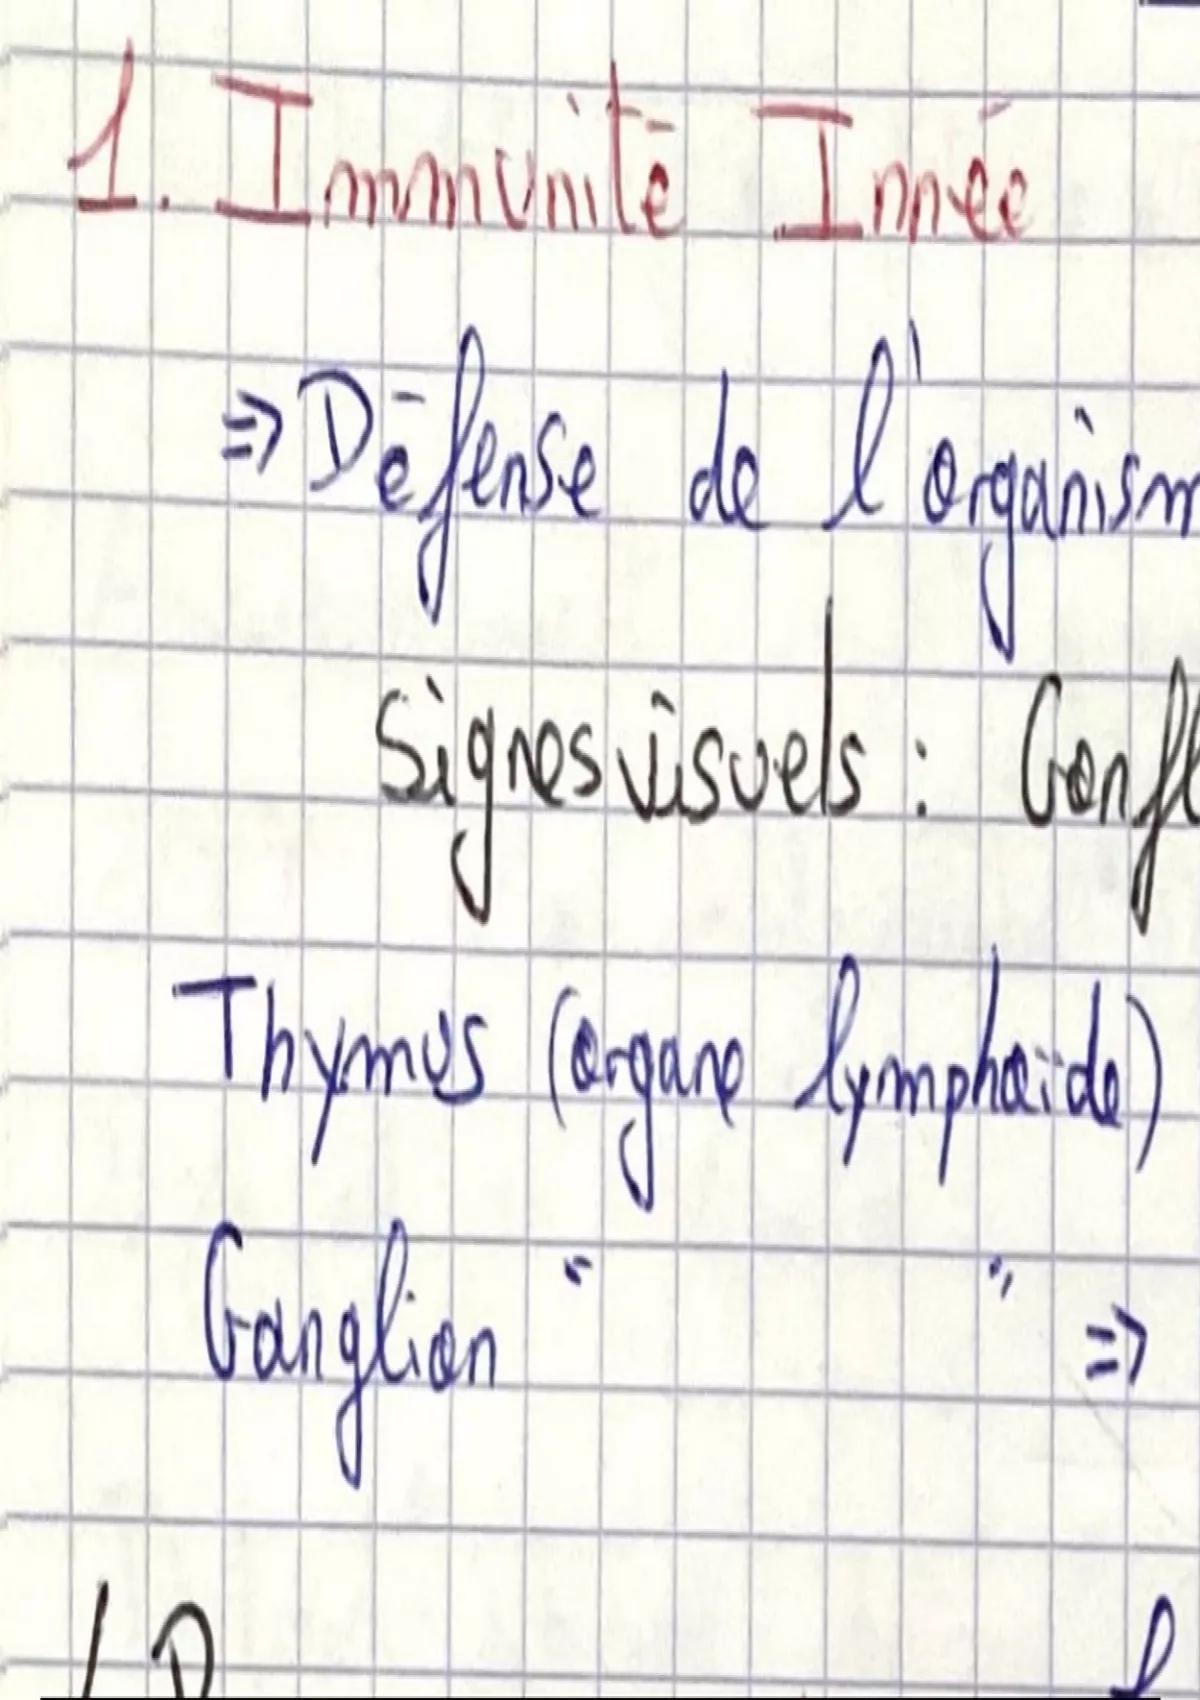 1. Immunité Innée
=> Défense de l'organism
Signes visuels : Gonfl
Thymus (organe lymphoïde)
Ganglion " " =>